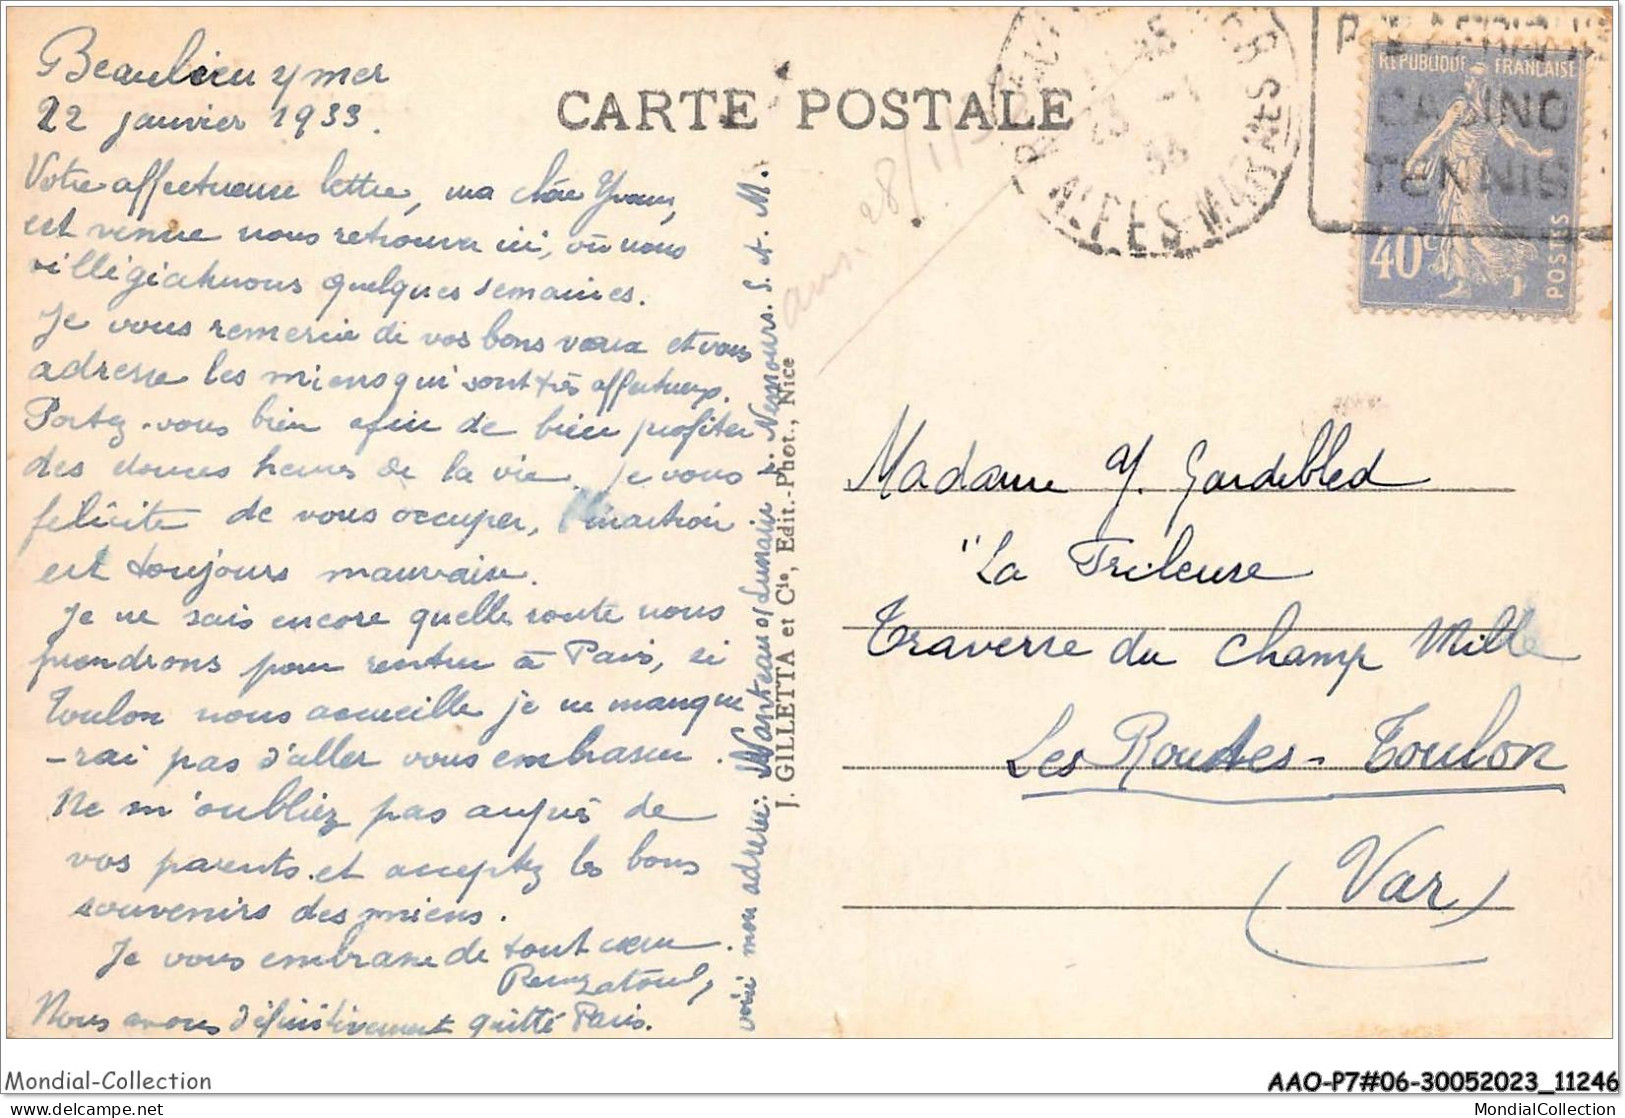 Beaulieu s/mer
22 janvier 1933.
Votre affectueuse lettre, ma chère
est venue nous retrouver ici, où nous
villégiaturons quelques semaines.
Je vous remercie de vos bons vœux et vous
adresse les miens qui sont très affectueux.
Portez-vous bien afin de bien profiter
des douces heures de la vie. Je vous
félicite de vous occuper, l'inaction
est toujours mauvaise.
Je ne sais encore quelle route nous
prendrons pour rentrer à Paris, si
Toulon nous accueille je ne manque
-rai pas d'aller vous embrasser.
Ne m'oubliez pas auprès de
vos parents et acceptez les bons
souvenirs des miens.
Je vous embrasse de tout cœur.
Nous avons définitivement quitté Paris.
voici mon adresse: Nanteau s/ Lunain p. Nemours. S. et M.
CARTE POSTALE
J. GILLETTA et Cie, Edit.-Phot., Nice
ALPES-MARMES
CASINO
TENNIS
REPUBLIQUE FRANÇAISE
40c
POSTES
28/1/
Madame Y. Gardebled
"La Frileuse
Traverse du Champ Mille
Les Routes - Toulon
(Var)
Mondial-Collection
AAO-P7#06-30052023_11246
delcampe.net
MondialCollection